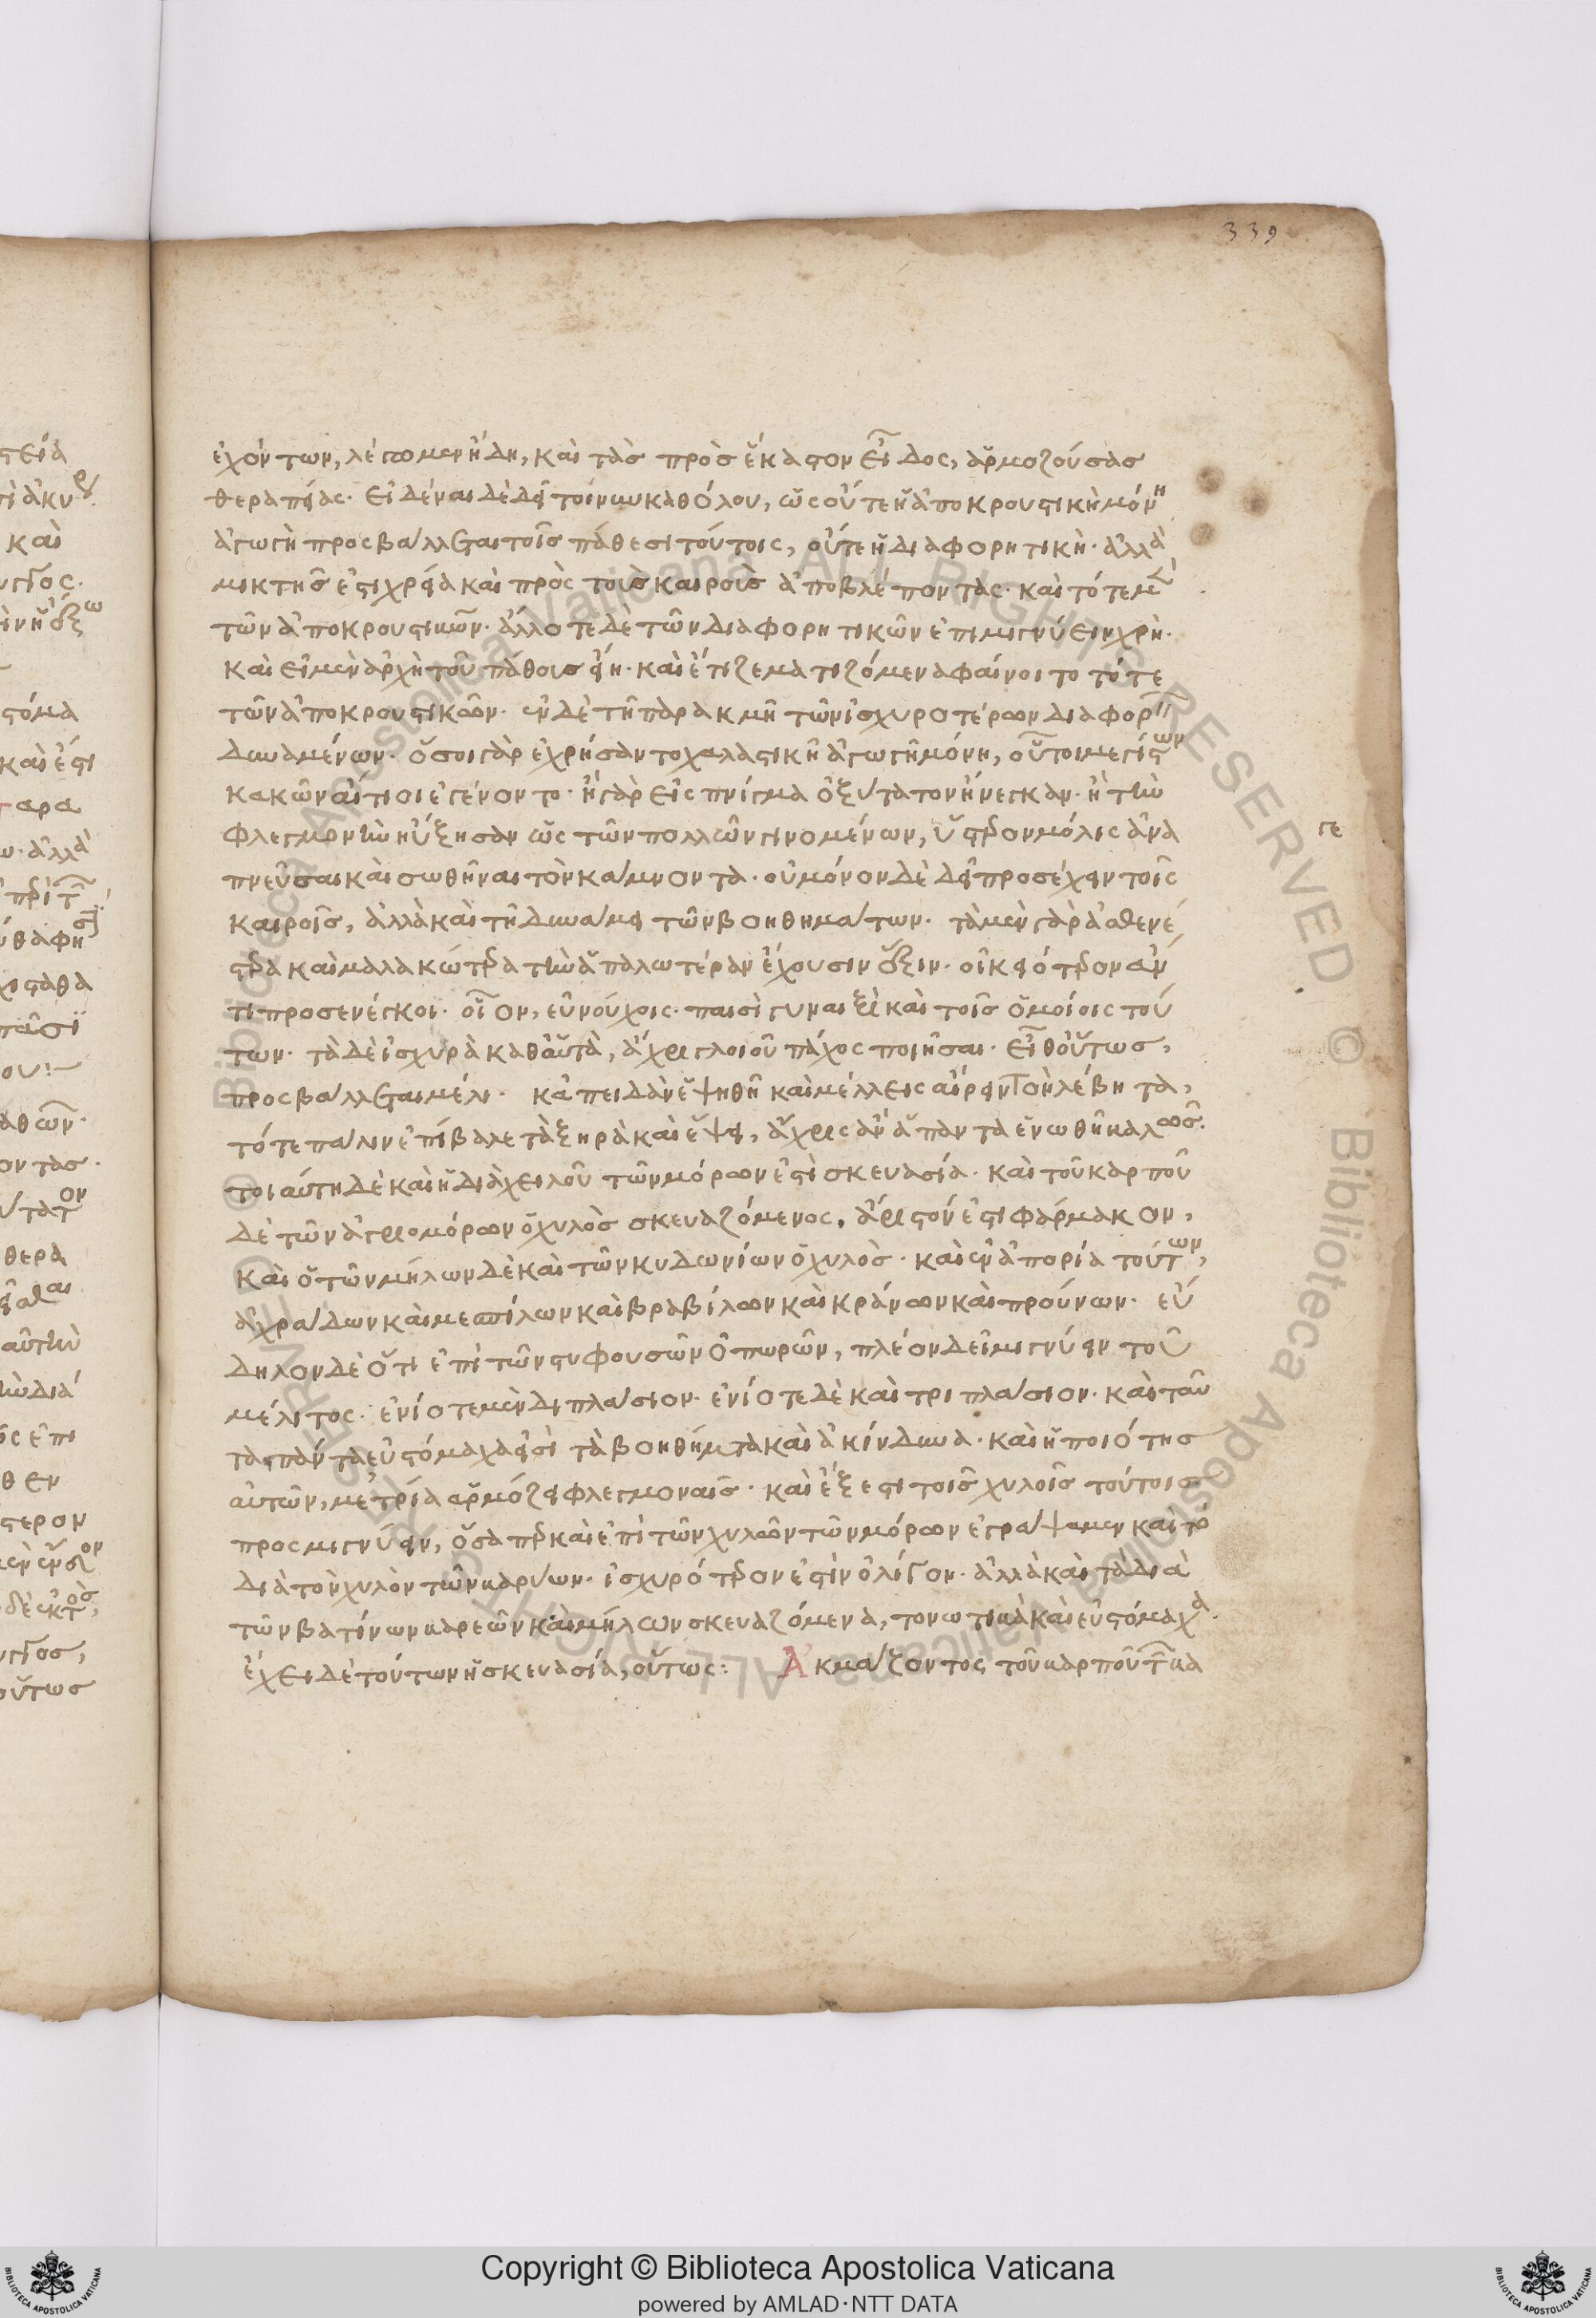 339
ἐχόντων, λέγομεν ἤδη, καὶ τὰς πρὸς ἕκαστον εἶδος, ἁρμοζούσας
θεραπείας. εἰδέναι δὲ δεῖ τοίνυν καθόλου, ὡς οὔτε ἡ ἀποκρουστικὴ μόνη
ἀγωγὴ προσβάλλεται τοῖς πάθεσι τούτοις, οὔτε ἡ διαφορητικὴ. ἀλλὰ
μικτῆς ἐστι χρεία καὶ πρὸς τοὺς καιροὺς ἀποβλέποντας. καὶ τότε μὲν
τῶν ἀποκρουστικῶν. ἄλλοτε δὲ τῶν διαφορητικῶν ἐπιμιγνύειν χρὴ.
καὶ εἰ μὲν ἀρχὴ τοῦ πάθους εἴη. καὶ ἔτι ῥεματιζόμενα φαίνοιτο τότε
τῶν ἀποκρουστικῶν. ἐν δὲ τῆ παρακμῆ τῶν ἰσχυροτέρων διαφορεῖν
δυναμένων. ὅσοι γὰρ ἐχρήσαντο χαλαστικῆ ἀγωγῆ μόνη, οὗτοι μεγίστων
κακῶν αἴτιοι ἐγένοντο. ἢ γὰρ εἰς πνίγμα ὀξύτατον ἤνεγκαν. ἢ τὴν
φλεγμονὴν ηὔξησαν ὡς τῶν πολλῶν γινομένων, ὕστερον μόλις ἀνα
πνεῦσαι καὶ σωθῆναι τὸν κάμνοντα. οὐ μόνον δὲ δεῖ προσέχειν τοῖς
γε
καιροῖς, ἀλλὰ καὶ τῆ δυνάμει τῶν βοηθημάτων. τὰ μὲν γὰρ ἀσθενέ
στερα καὶ μαλακώτερα τὴν ἁπαλωτέραν ἔχουσιν ἕξιν. οἰκειότερον ἄν
τι προσενέγκοι. οἷον, εὐνούχοις. παισὶ γυναιξὶ καὶ τοῖς ὁμοίοις τού
των. τὰ δὲ ἰσχυρὰ καθ' αὑτὰ, ἄχρι γλοιοῦ πάχος ποιῆσαι. εἶθ' οὕτως,
προσβάλλεται μέλι. κἀπειδὰν ἑψηθῆ καὶ μέλλεις αἴρειν τὸν λέβητα,
τότε πάλιν ἐπίβαλε τὰ ξηρὰ καὶ ἕψει, ἄχρις ἂν ἅπαντα ἑνωθῆ καλῶς.
τοιαύτη δὲ καὶ ἡ διὰ χυλοῦ τῶν μόρων ἐστὶ σκευασία. καὶ τοῦ καρποῦ
δὲ τῶν ἀγριομόρων ὁ χυλὸς σκευαζόμενος, ἄριστόν ἐστι φάρμακον,
καὶ ὁ τῶν μήλων δὲ καὶ τῶν κυδωνίων ὁ χυλὸς. καὶ ἐν ἀπορία τούτων,
ἀχράδων καὶ μεσπίλων καὶ βραβίλων καὶ κράνων καὶ προύνων. εὔ
δηλον δὲ ὅτι ἐπὶ τῶν στυφουσῶν ὀπωρῶν, πλέον δεῖ μιγνύειν τοῦ
μέλιτος. ἐνίοτε μὲν διπλάσιον. ἐνίοτε δὲ καὶ τριπλάσιον. καὶ ταῦ
τα πάντα εὐστόμαχα εἰσὶ τὰ βοηθήματα καὶ ἀκίνδυνα. καὶ ἡ ποιότης
αὐτῶν, μετρία ἁρμόζει φλεγμοναῖς. καὶ ἔξεστι τοῖς χυλοῖς τούτοις
προσμιγνύειν, ὅσα περ καὶ ἐπὶ τῶν χυλῶν τῶν μόρων ἐγράψαμεν καὶ τὸ
διὰ τὸν χυλὸν τῶν καρύων. ἰσχυρότερον ἐστὶν ὀλίγον. ἀλλὰ καὶ τὰ διὰ
τῶν βατίνων καρεῶν καὶ μήλων σκευαζόμενα, τονωτικὰ καὶ εὐστόμαχα.
ἔχει δὲ τούτων ἡ σκευασία, οὕτως: Ἀκμάζοντος τοῦ καρποῦ τὴν κα
Copyright © Biblioteca Apostolica Vaticana
powered by AMLAD·NTT DATA